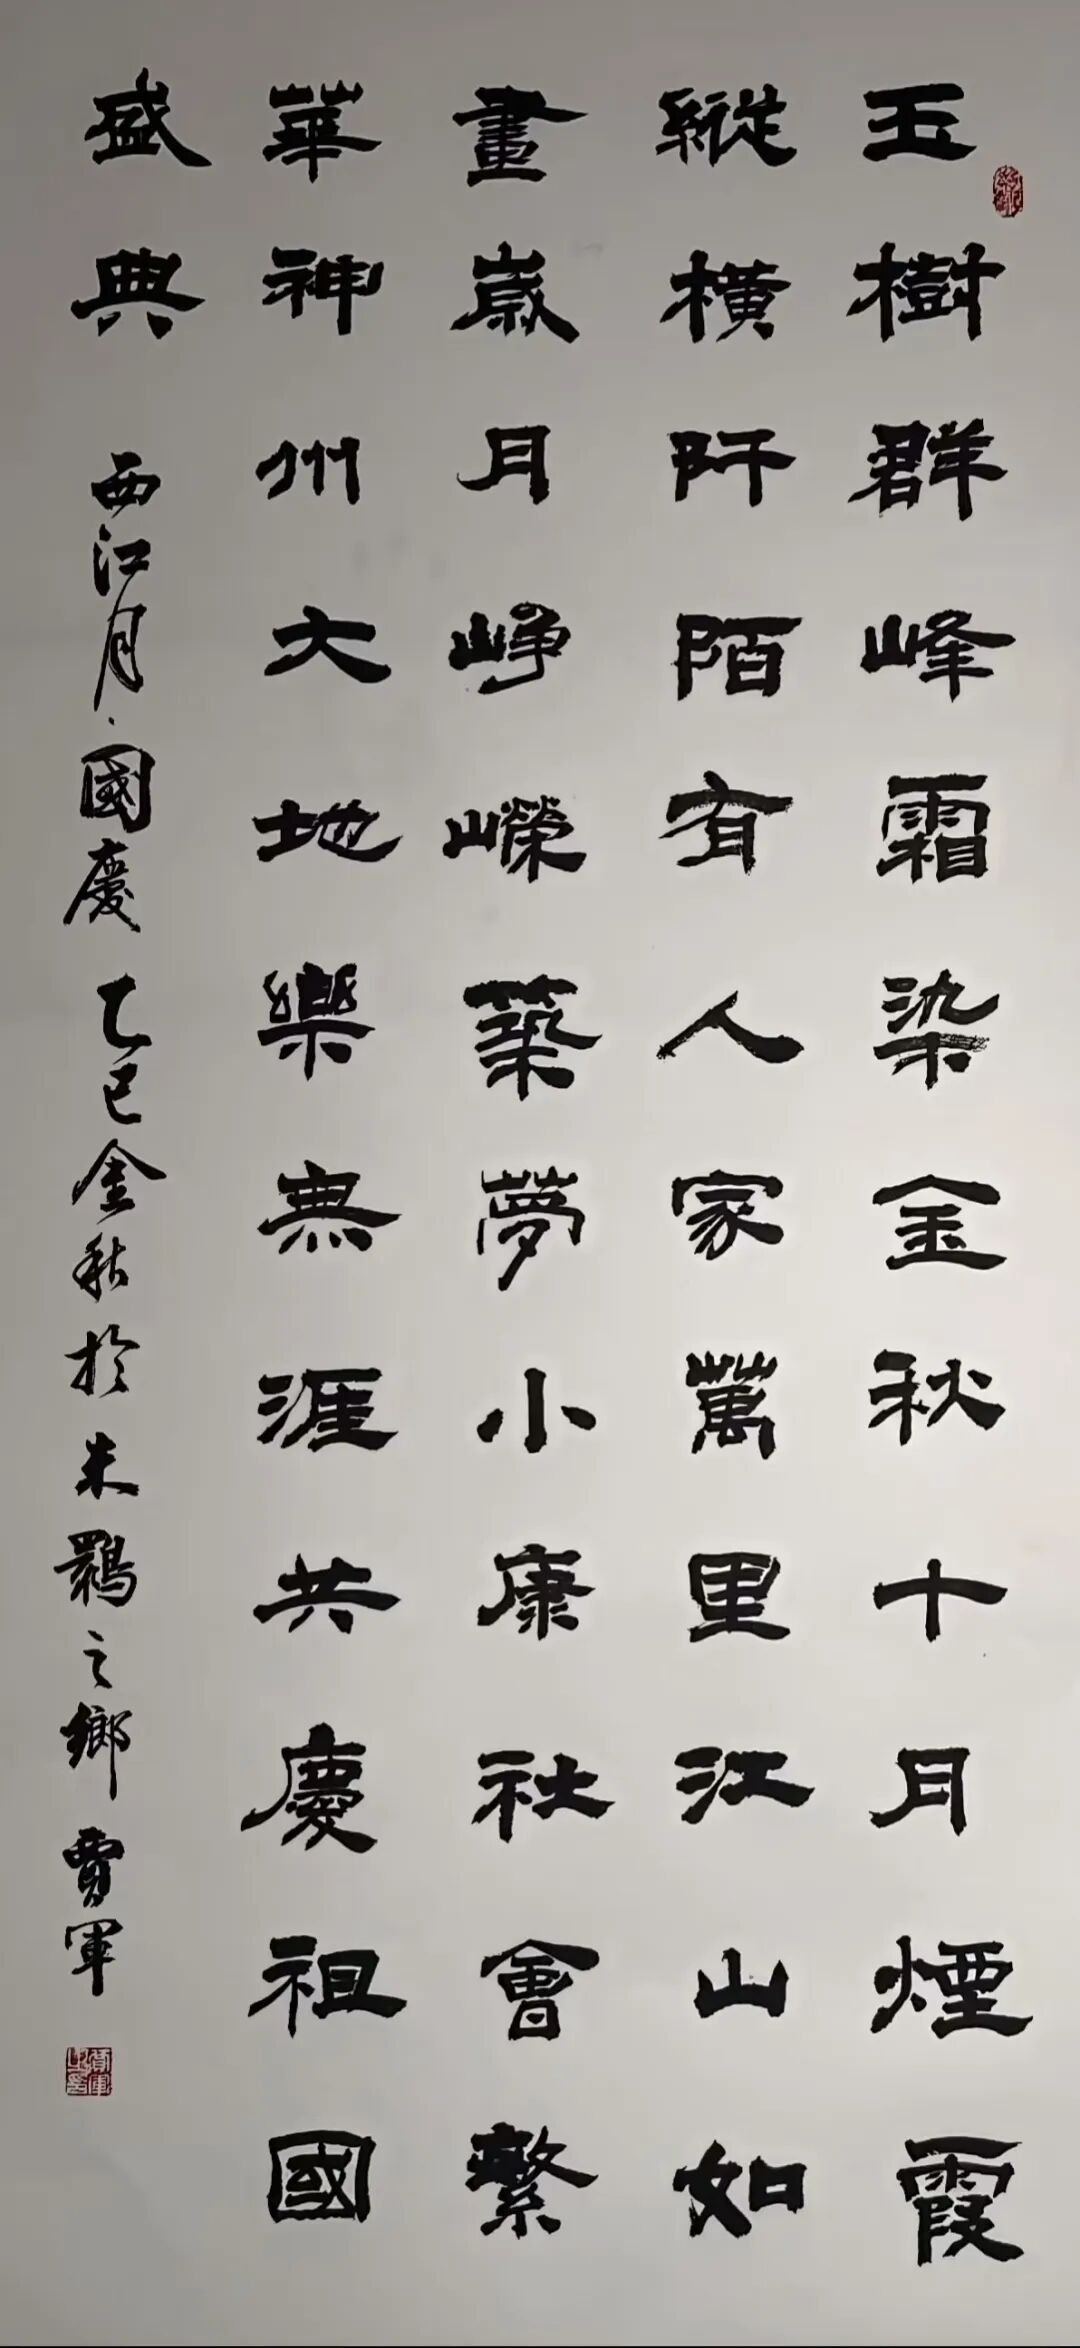 玉樹群峰霜染金秋十月煙霞
縱横阡陌有人家萬里江山如
畫歲月崢嶸築夢小康社會繁
華神州大地樂無涯共慶祖國
盛典
西江月·國慶 乙巳金秋於朱鹮之鄉 賈軍